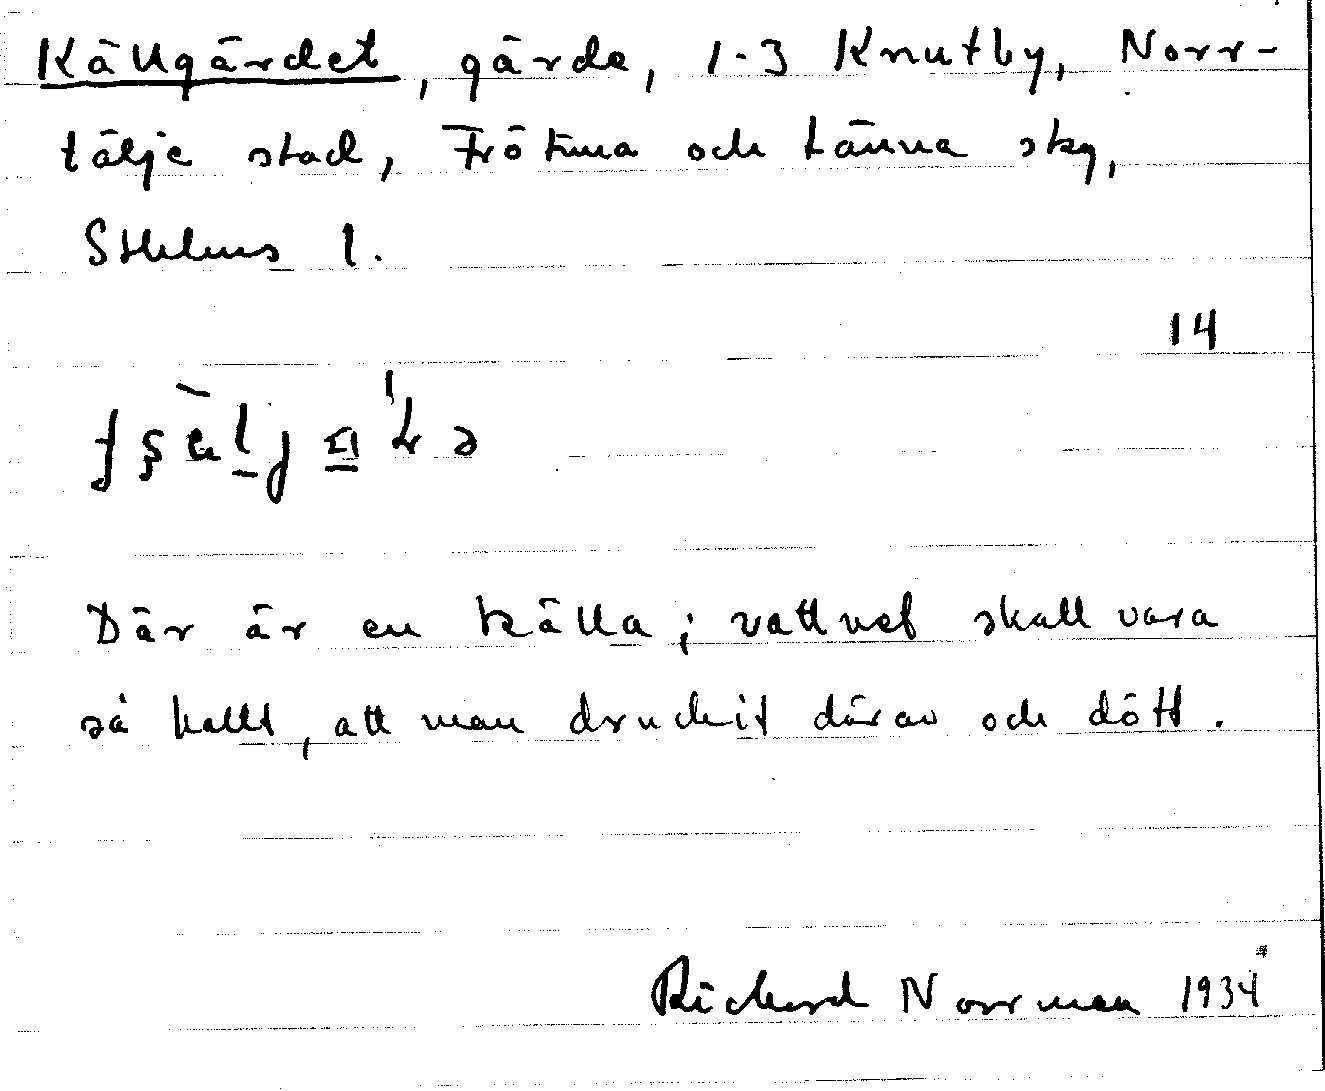 Källgärdet, gärde, 1-3 Knutby, Norr-
tälje stad, Frötuna och Länna sky,
Sthlms l.
14
Där är en källa; vattnet skall vara
så kallt, att man druckit därav och dött.
Richard Norrman 1934